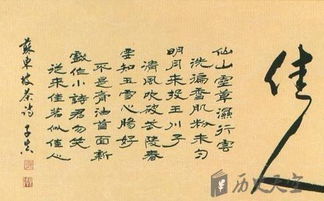 佳人
仙山靈草濕行雲
洗遍香肌粉未勻
明月來投玉川子
清風吹破武陵春
要知玉雪心腸好
不是膏油首面新
戲作小詩君勿笑
從來佳茗似佳人
蘇東坡茶詩
历史天空